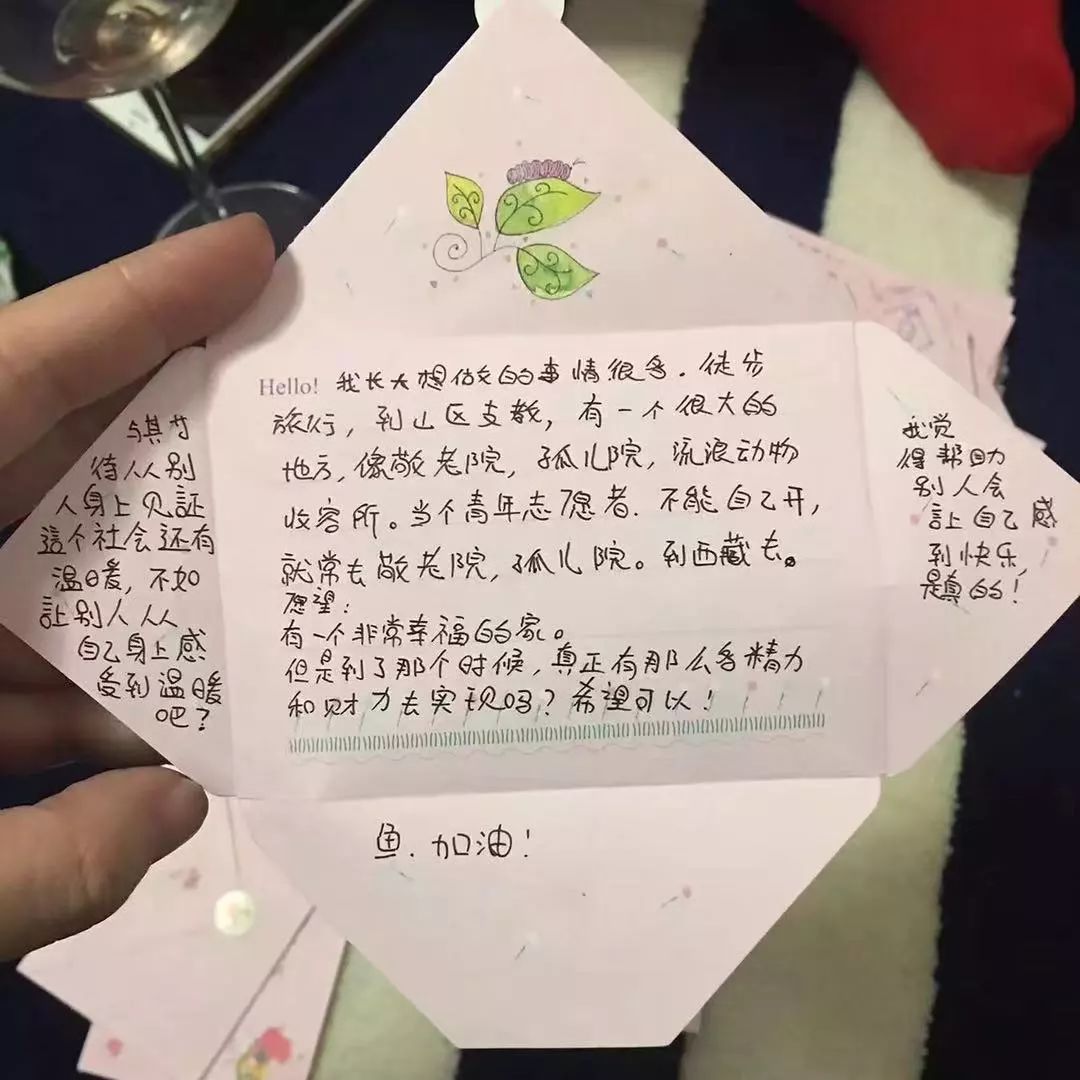 Hello! 我长大想做的事情很多.徒步
旅行,到山区支教,有一个很大的
地方,像敬老院,孤儿院,流浪动物
收容所。当个青年志愿者.不能自己开,
就常去敬老院,孤儿院。到西藏去。
愿望:
有一个非常幸福的家。
但是到了那个时候,真正有那么多精力
和财力去实现吗?希望可以!
与其
待从别
人身上见証
這个社会还有
温暖,不如
訁上别人从
自己身上感
受到温暖
吧?
我觉
得帮助
别人会
訁上自己感
到快乐,
是真的!
鱼.加油!